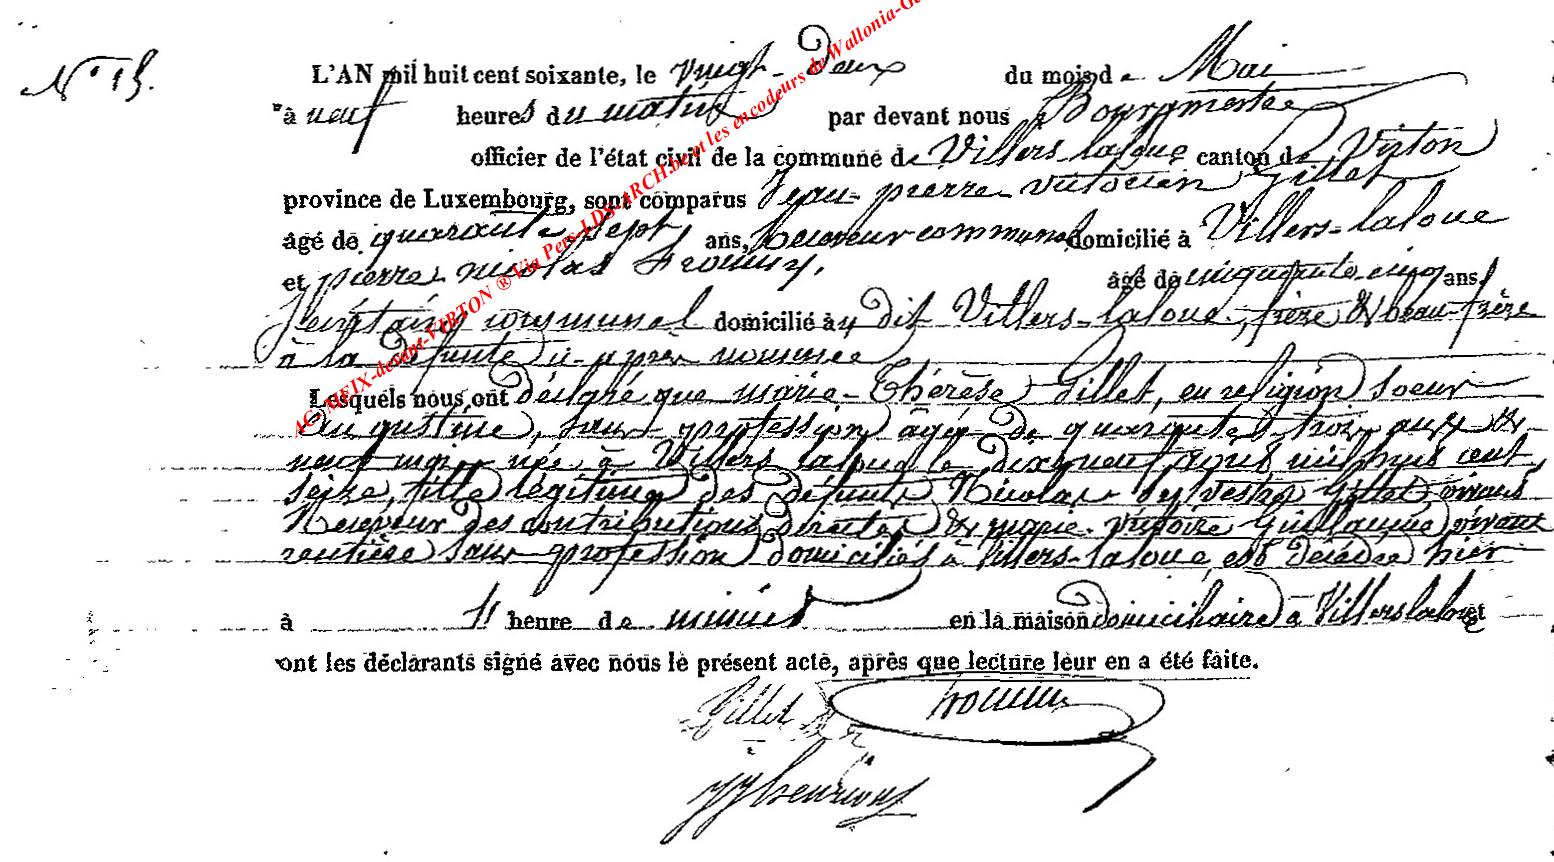 N° 15.
L'AN mil huit cent soixante, le vingt-deux du mois de Mai
à neuf heures du matin par devant nous Bourgmestre
officier de l'état civil de la commune de Villers-laloue canton de Virton
province de Luxembourg, sont comparus Jean-pierre victorien Gillet
âgé de quarante sept ans, Receveur communal domicilié à Villers-laloue
et pierre nicolas âgé de cinquante-cinq ans
Secrétaire communal domicilié à dit Villers-laloue, frère & beau-frère
à la défunte ci-après nommée
Lesquels nous ont déclaré que marie-Thérèse Gillet, en religion Soeur
Augustine, sans profession âgée de quarante trois ans &
neuf mois née à Villers laloue le dixneuf aout mil huit cent
seize, fille légitime des défunts Nicolas Sylvestre Gillet vivant
Receveur des contributions directes & marie-victoire Guillaume vivante
rentière sans profession domiciliés à Villers-laloue, est décédée hier
à 11 heure de minuit en la maison domiciliaire à Villers laloue et
ont les déclarants signé avec nous le présent acte, après que lecture leur en a été faite.
Gillet
AC MEIX-devant-VIRTON ® Via Pers-LDS-ARCH.be et les encodeurs de Wallonia-Ge